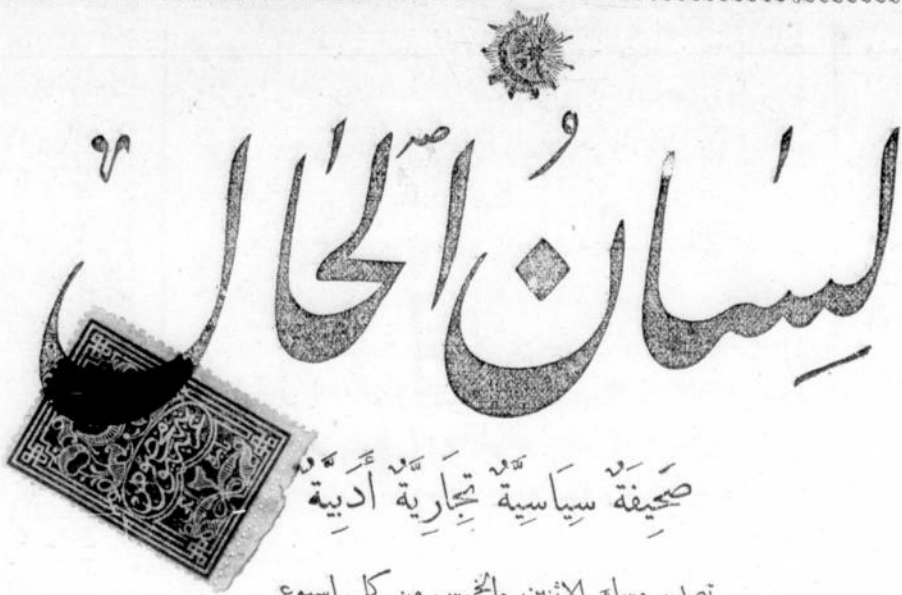 لِسَانُ الحَال
صَحِيفَةٌ سِيَاسِيَّةٌ تِجَارِيَّةٌ أَدَبِيَّةٌ
تصدر مساء الاثنين والخميس من كل اسبوع